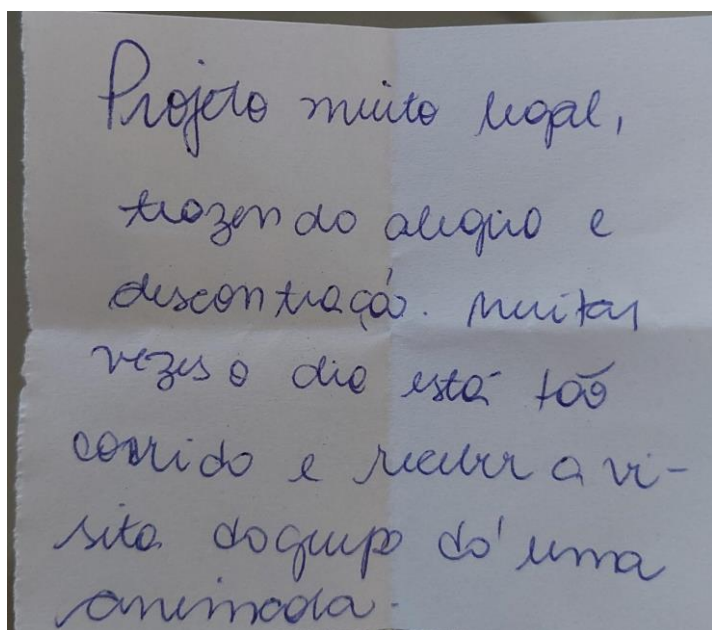 Projeto muito legal,
trazendo alegria e
descontração. Muitas
vezes o dia está tão
corrido e receber a vi-
sita do grupo dá uma
animada.